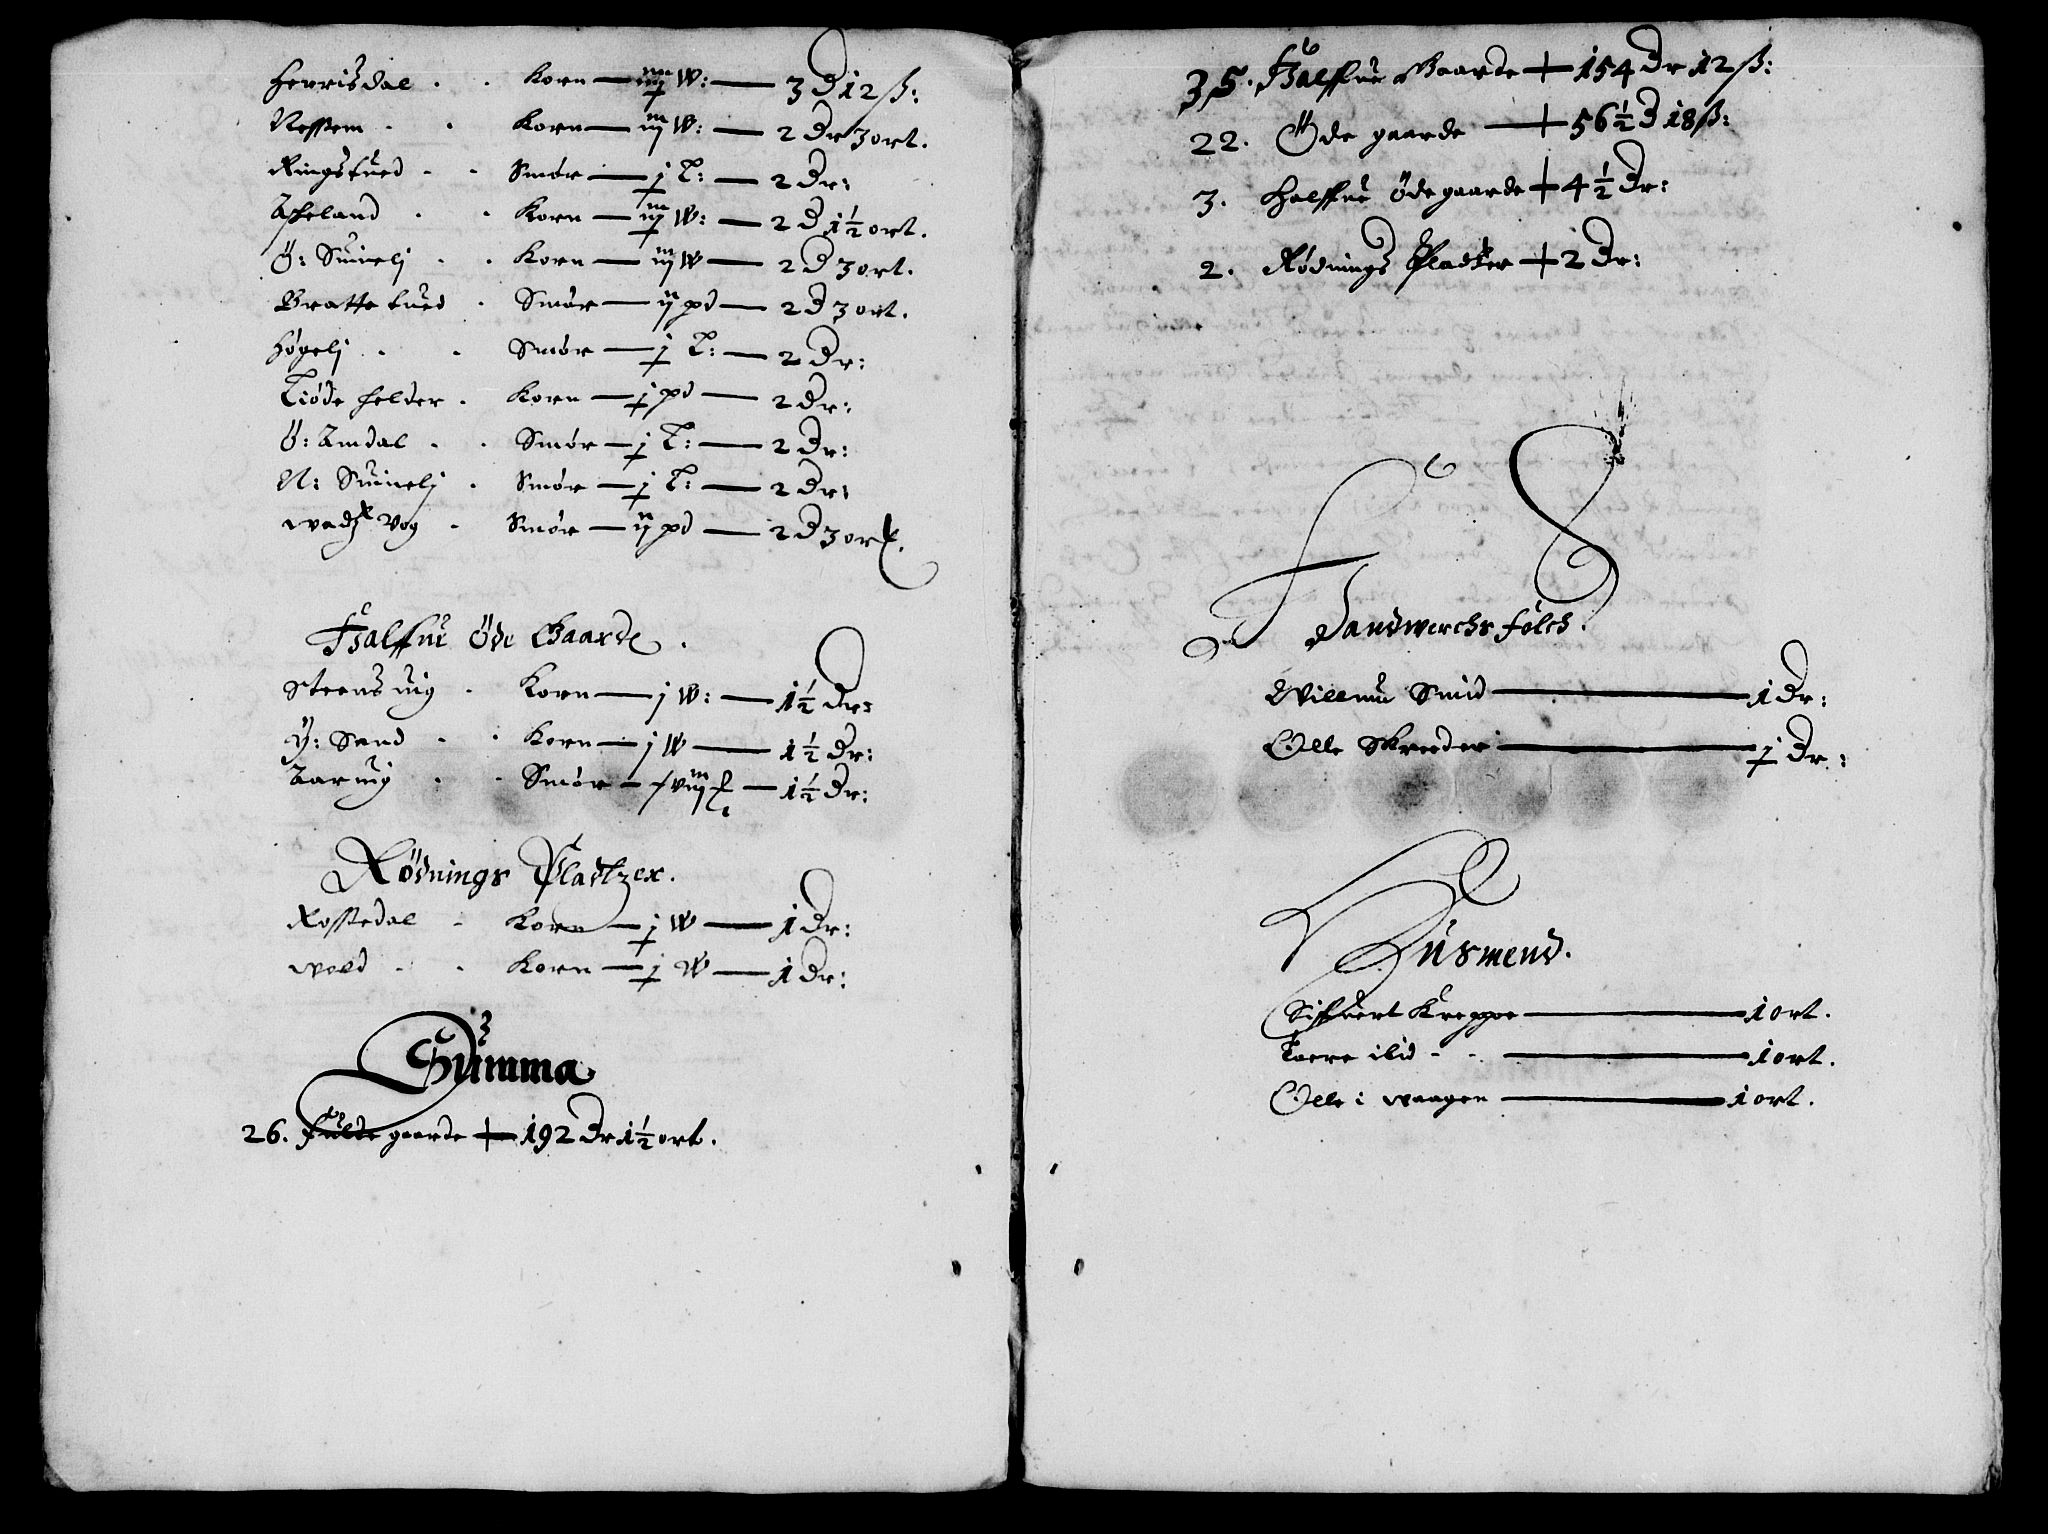 Herrisdal . . Korn — iiij W: — 3 D 12 ß:
Nessem . . Korn — iij W: — 2 Dr 3 ort.
Ringstued . . Smør — j L: — 2 Dr:
Asheland . . Korn — iij W: — 2 D 1½ ort.
Ö: Suinelj . . Korn — iij W — 2 D 3 ort.
Brattetued . Smør — ij pd — 2 D 3 ort.
Høgelj . . Smør — j L: — 2 Dr:
Liøde felder . Korn — j pd — 2 Dr:
Ö: Amdal . . Smør — j L: — 2 Dr:
N: Suinelj . Smør — j L: — 2 Dr:
Vog . Smør — ij pd — 2 D 3 ort.
Halffue Öde Gaarde .
Steensuig . Korn — j W: — 1½ Dr:
Y: Sand . . Korn — j W — 1½ Dr:
Aaruig . . Smør — 1½ Dr:
Rödnings Pladtzer.
Rossedal . Korn — j W — 1 Dr:
wold . . Korn — j W — 1 Dr:
Summa
26. fulde gaarde + 192 Dr 1½ ort.
35. Halffue Gaarde + 154 Dr 12 ß:
22. Öde gaarde — + 56½ D 18 ß:
3. Halffue öde gaarde + 4½ Dr:
2. Rødnings Pladtzer + 2 Dr:
Handwerchs folch.
Willum Smid — 1 Dr:
Olle Skreder — j Dr:
Husmend.
Siffuert Kreppoe — 1 ort.
Taere ilid . . — 1 ort.
Olle i waagen — 1 ort.